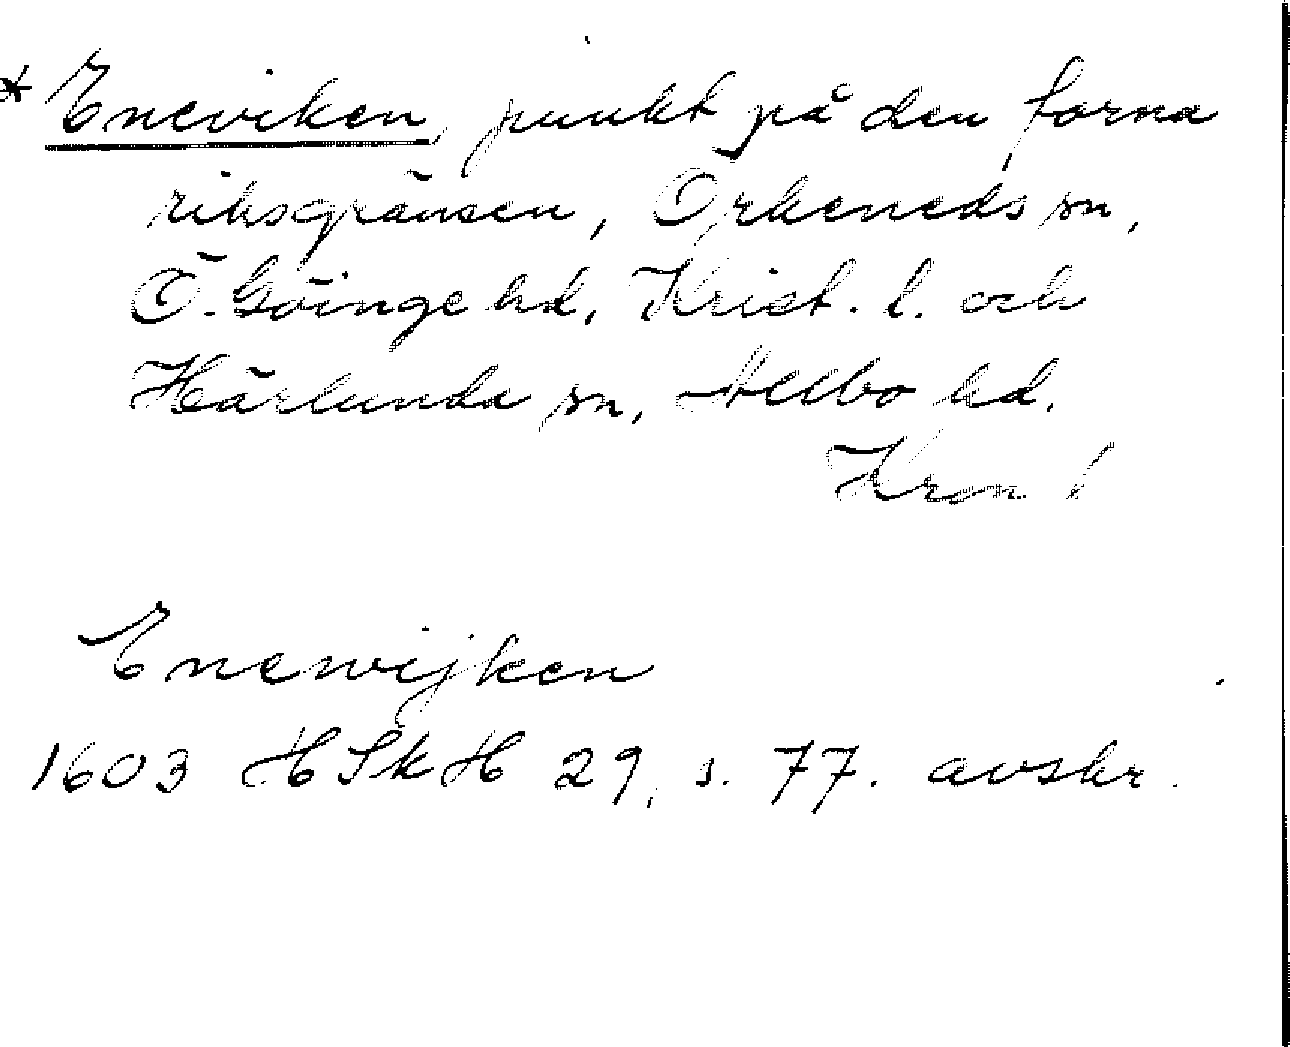 * Eneviken, punkt på den forna
riksgränsen, Örkeneds sn,
Ö. Göinge hd, Krist. l. och
Härlunda sn, Allbo hd.
Kron l
Enewijken
1603 HSkH 29, s. 77. avskr.